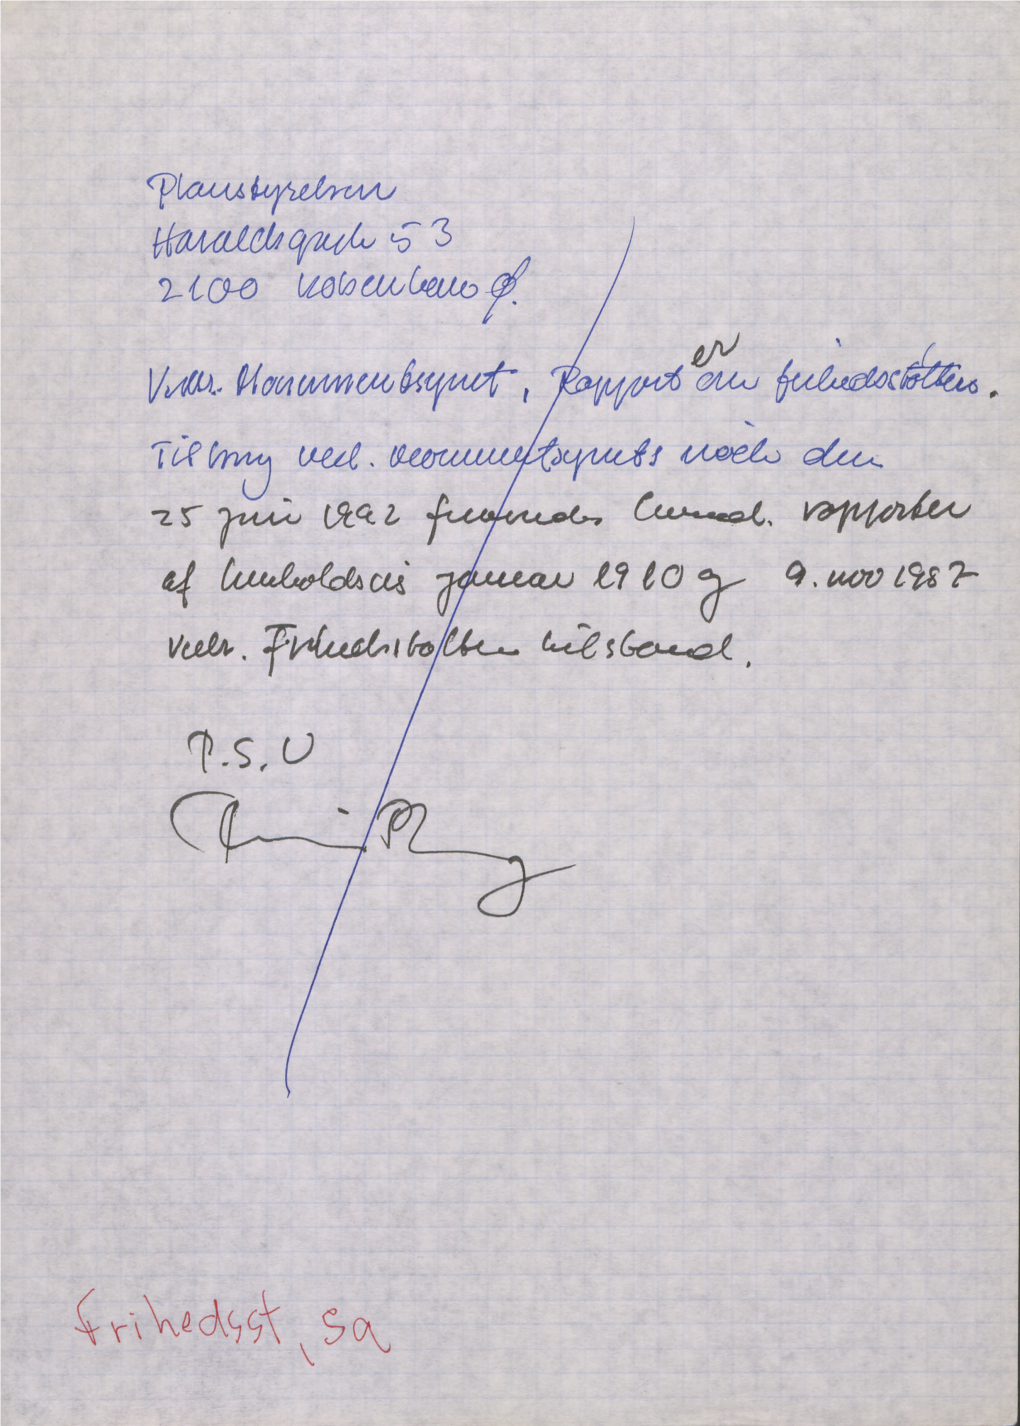 Planstyrelsen
Haraldsgade 53
2100 København Ø.
Vedr. Monumentsynet, Rapporter om frihedsstøtten.
Til brug ved. monumentsynets møde den
25 juni 1992 fremsendes hermed. rapporter
af henholdsvis januar 1910 og 9. nov 1987
vedr. Frihedsstøttens tilstand.
P.S.V
Frihedsst, sa